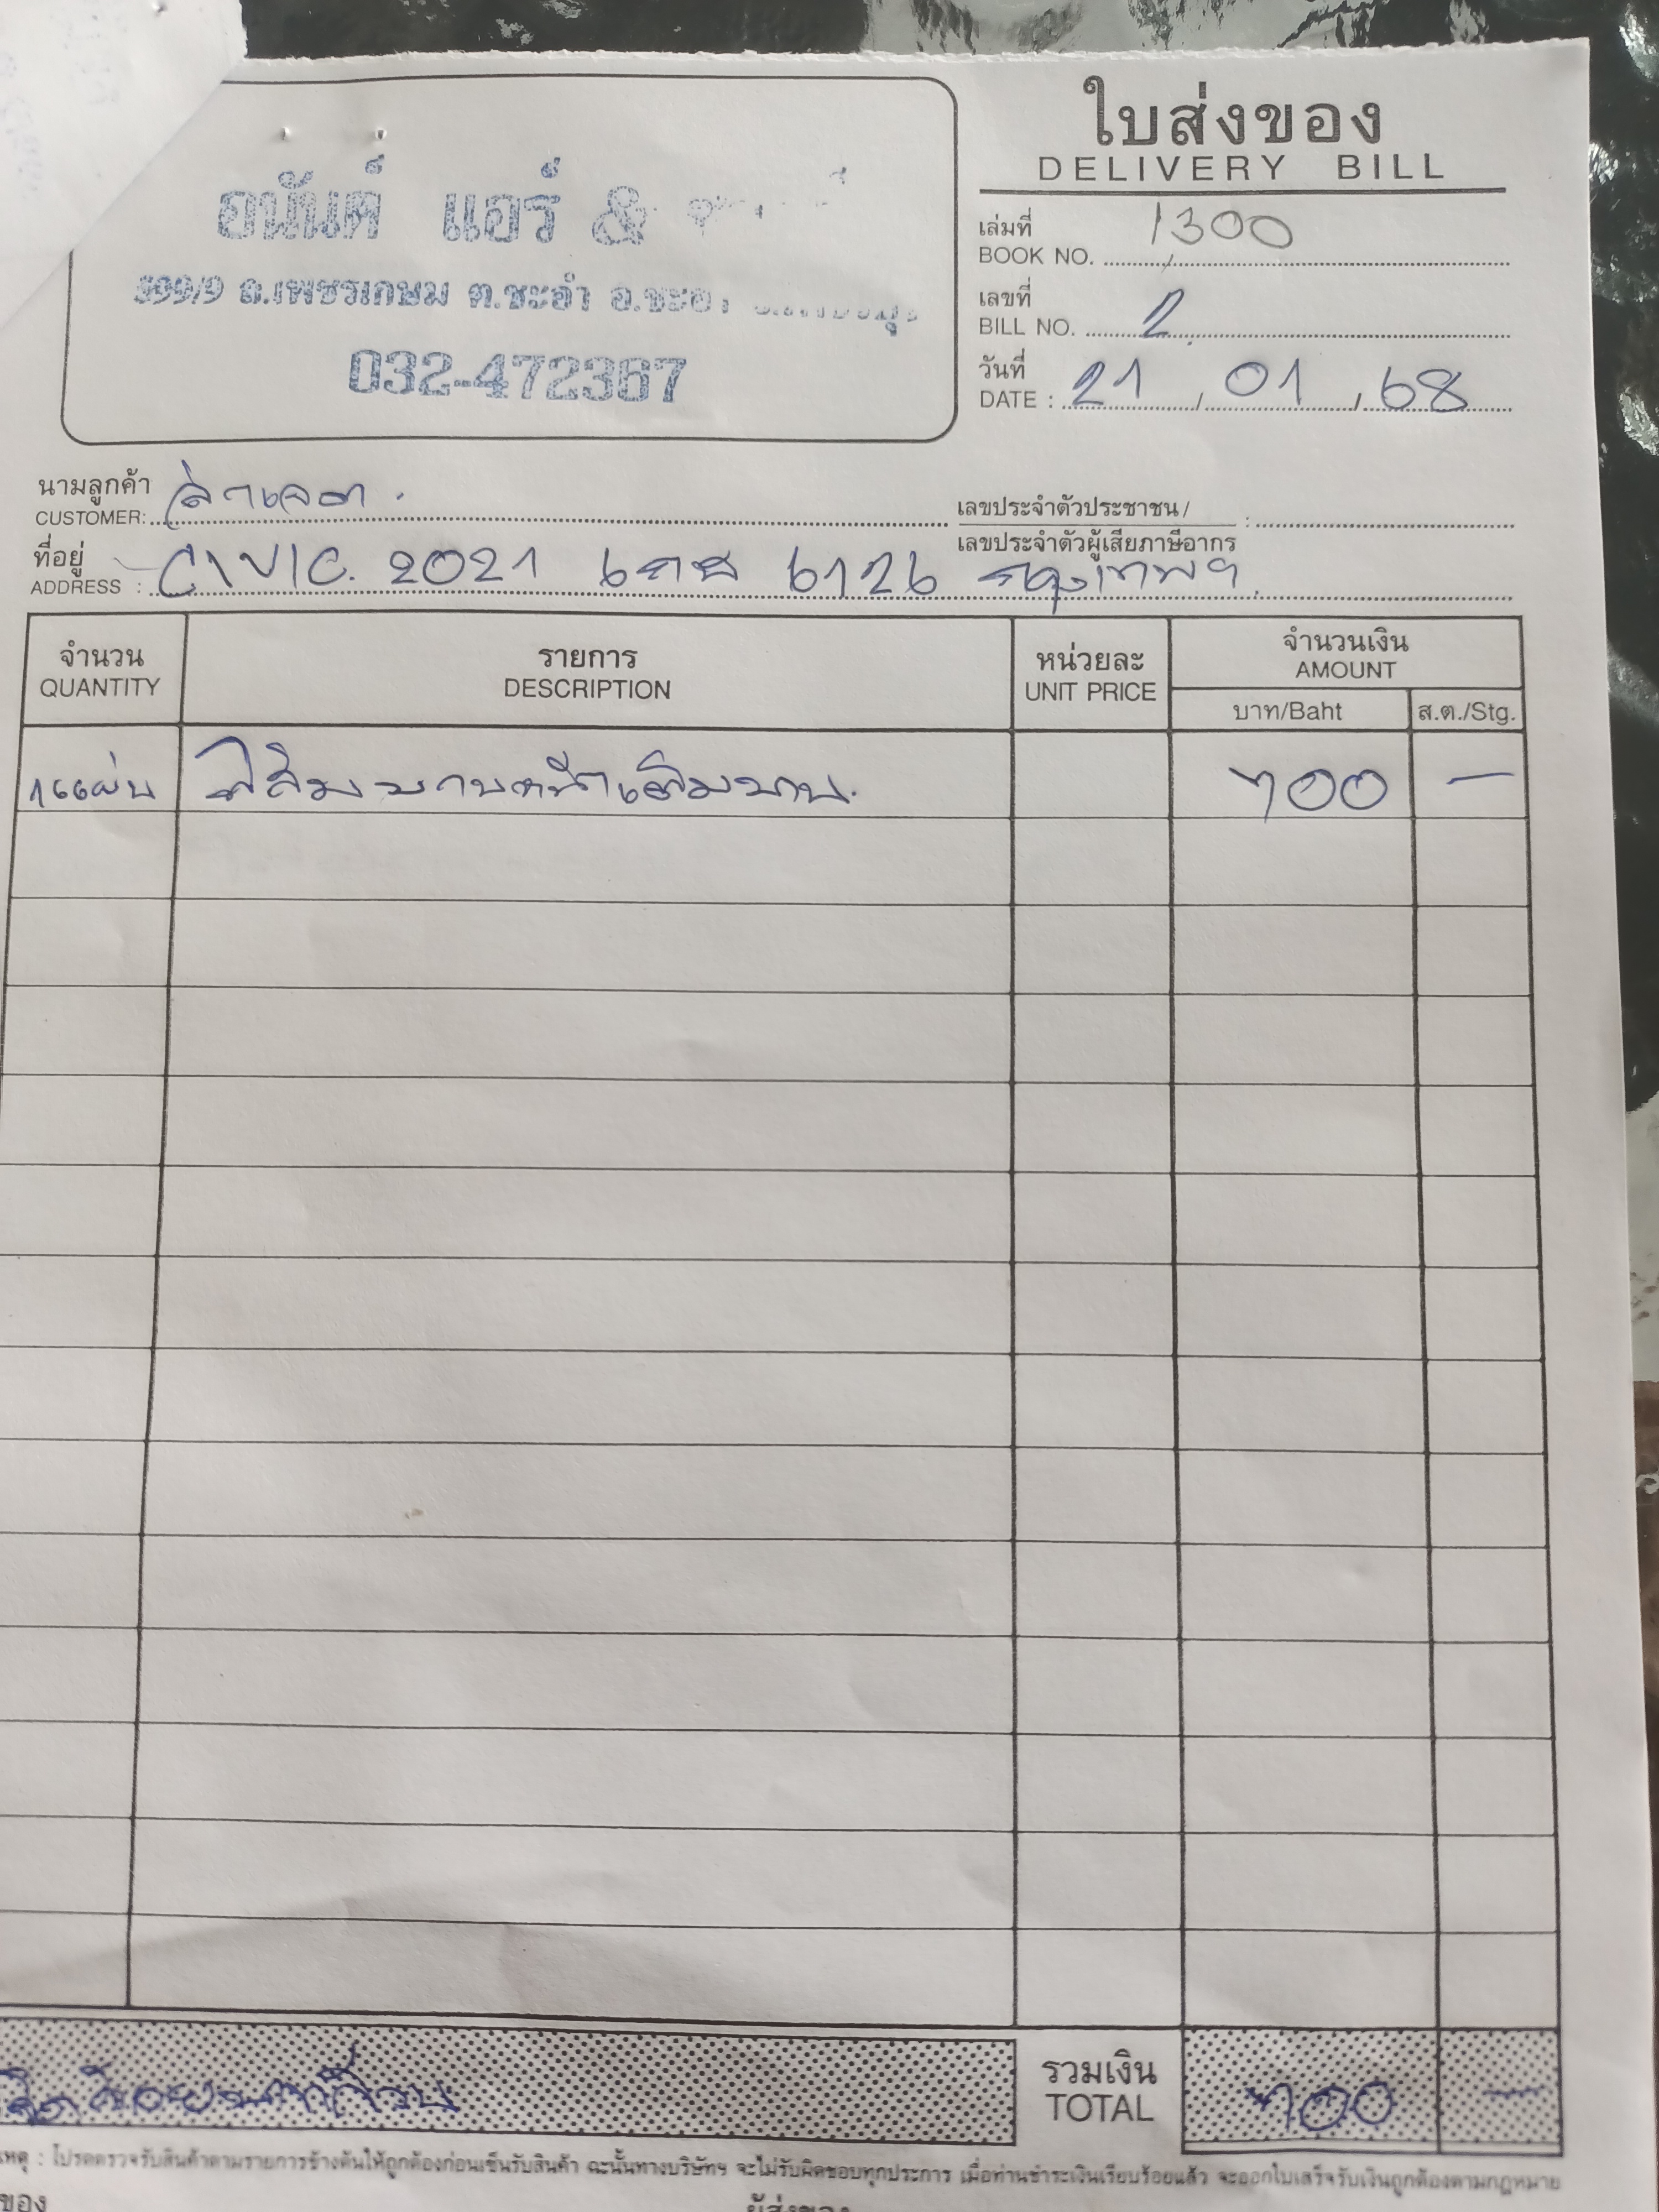 ใบส่งของ
DELIVERY BILL
อนันต์ แอร์ &
399/9 ถ.เพชรเกษม ต.ชะอำ อ.ชะอำ
032-472367
เล่มที่
BOOK NO. 1300
เลขที่
BILL NO. 2
วันที่
DATE : 21 / 01 / 68
นามลูกค้า
CUSTOMER:
เลขประจำตัวประชาชน /
เลขประจำตัวผู้เสียภาษีอากร :
ที่อยู่
ADDRESS : CIVIC. 2021 6126 กรุงเทพฯ
จำนวน
QUANTITY
รายการ
DESCRIPTION
หน่วยละ
UNIT PRICE
จำนวนเงิน
AMOUNT
บาท/Baht
ส.ต./Stg.
1แผ่น ฟิล์ม บานหน้าเต็มบาน. 700 —
เจ็ดร้อยบาทถ้วน
รวมเงิน
TOTAL
700 —
เหตุ : โปรดตรวจรับสินค้าตามรายการข้างต้นให้ถูกต้องก่อนเซ็นรับสินค้า ฉะนั้นทางบริษัทฯ จะไม่รับผิดชอบทุกประการ เมื่อท่านชำระเงินเรียบร้อยแล้ว จะออกใบเสร็จรับเงินถูกต้องตามกฎหมาย
ของ
ผู้ส่งของ